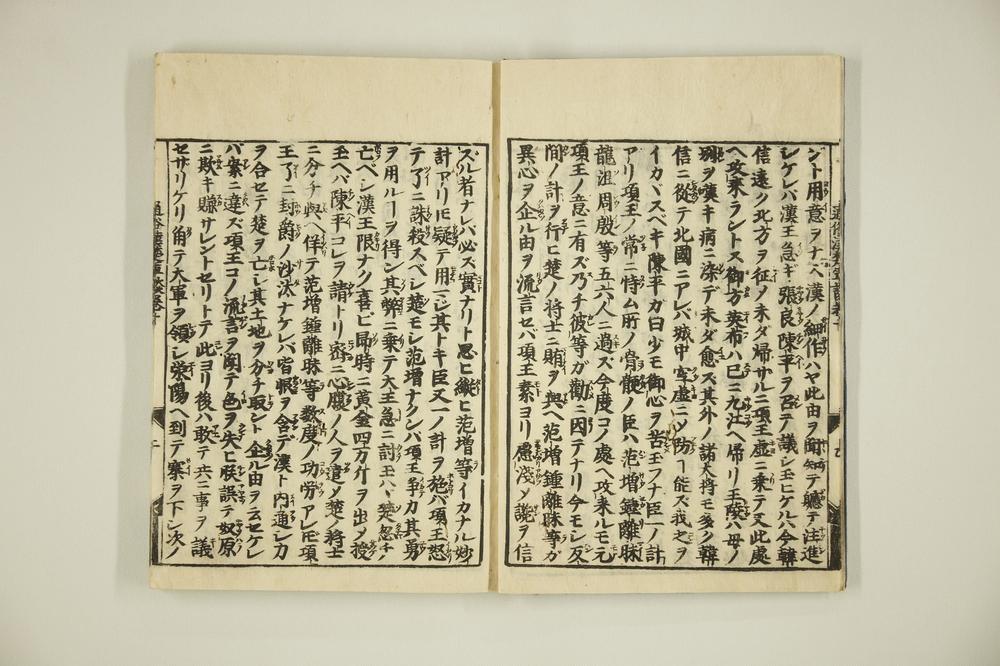 ント用意ヲナス漢ノ細作ハヤ此由ヲ聞知テ驪テ注進
シケレバ漢王急ギ張良陳平ヲ召テ議シ玉ヒケルハ今韓
信遠ク北方ヲ征メ未ダ帰サルニ項王虚ニ乗テ又此處
ヘ攻来ラントス御方英布ハ已ニ九江ヘ帰リ王陵ハ母ノ
ヲ嘆キ病ニ染デ未ダ愈ズ其外ノ諸大将モ多ク韓
信ニ従テ北國ニアレバ城中空虚ニメ防ヿ能ズ我之ヲ
イカヾスベキ陳平ガ曰少モ御心ヲ苦玉フナ臣一ノ計
アリ項王ノ常ニ恃ム所ノ骨骾ノ臣ハ范増鍾離昧
龍沮周殷等五六人ニ過ズ今度コノ處ヘ攻来ルモ元
項王ノ意ニ有ズ乃チ彼等ガ勸ニ因テナリ今モシ反
間ノ計ヲ行ヒ楚ノ将士ニ賂ヲ與ヘ范増鍾離昧等ガ
異心ヲ企ル由ヲ流言セバ項王素ヨリ愚淺メ讒ヲ信
ズル者ナレバ必ズ實ナリト思ヒ縦ヒ范増等イカナル妙
計アリ𪜈疑テ用ヒジ其トキ臣又一ノ計ヲ施バ項王怒
テ了ニ誅殺スベシ楚モシ范増ナクンバ項王争カ其勇
ヲ用ルヿヲ得ン其弊ニ乗テ大王急ニ討玉ハヾ楚忽チ
亡ベシ漢王限ナク喜ビ即時ニ黄金四万斤ヲ出メ授
玉ヘバ陳平コレヲ請トリ密ニ心腹ノ人ヲ遣メ楚ノ将士
ニ分チ與ヘ佯テ范増鍾離昧等数度ノ功労アレ𪜈項
王了ニ封爵ノ沙汰ナケレバ皆恨ヲ含デ漢ト内通シ力
ヲ合セテ楚ヲ亡シ其土地ヲ分チ取ント企ル由ヲ云セケレ
バ案ニ違ズ項王コノ流言ヲ聞テ色ヲ失ヒ朕誤テ奴原
ニ欺キ賺サレントセリトテ此ヨリ後ハ敢テ共ニ事ヲ議
セザリケリ角テ大軍ヲ領シ栄陽ヘ到テ寨ヲ下シ次ノ